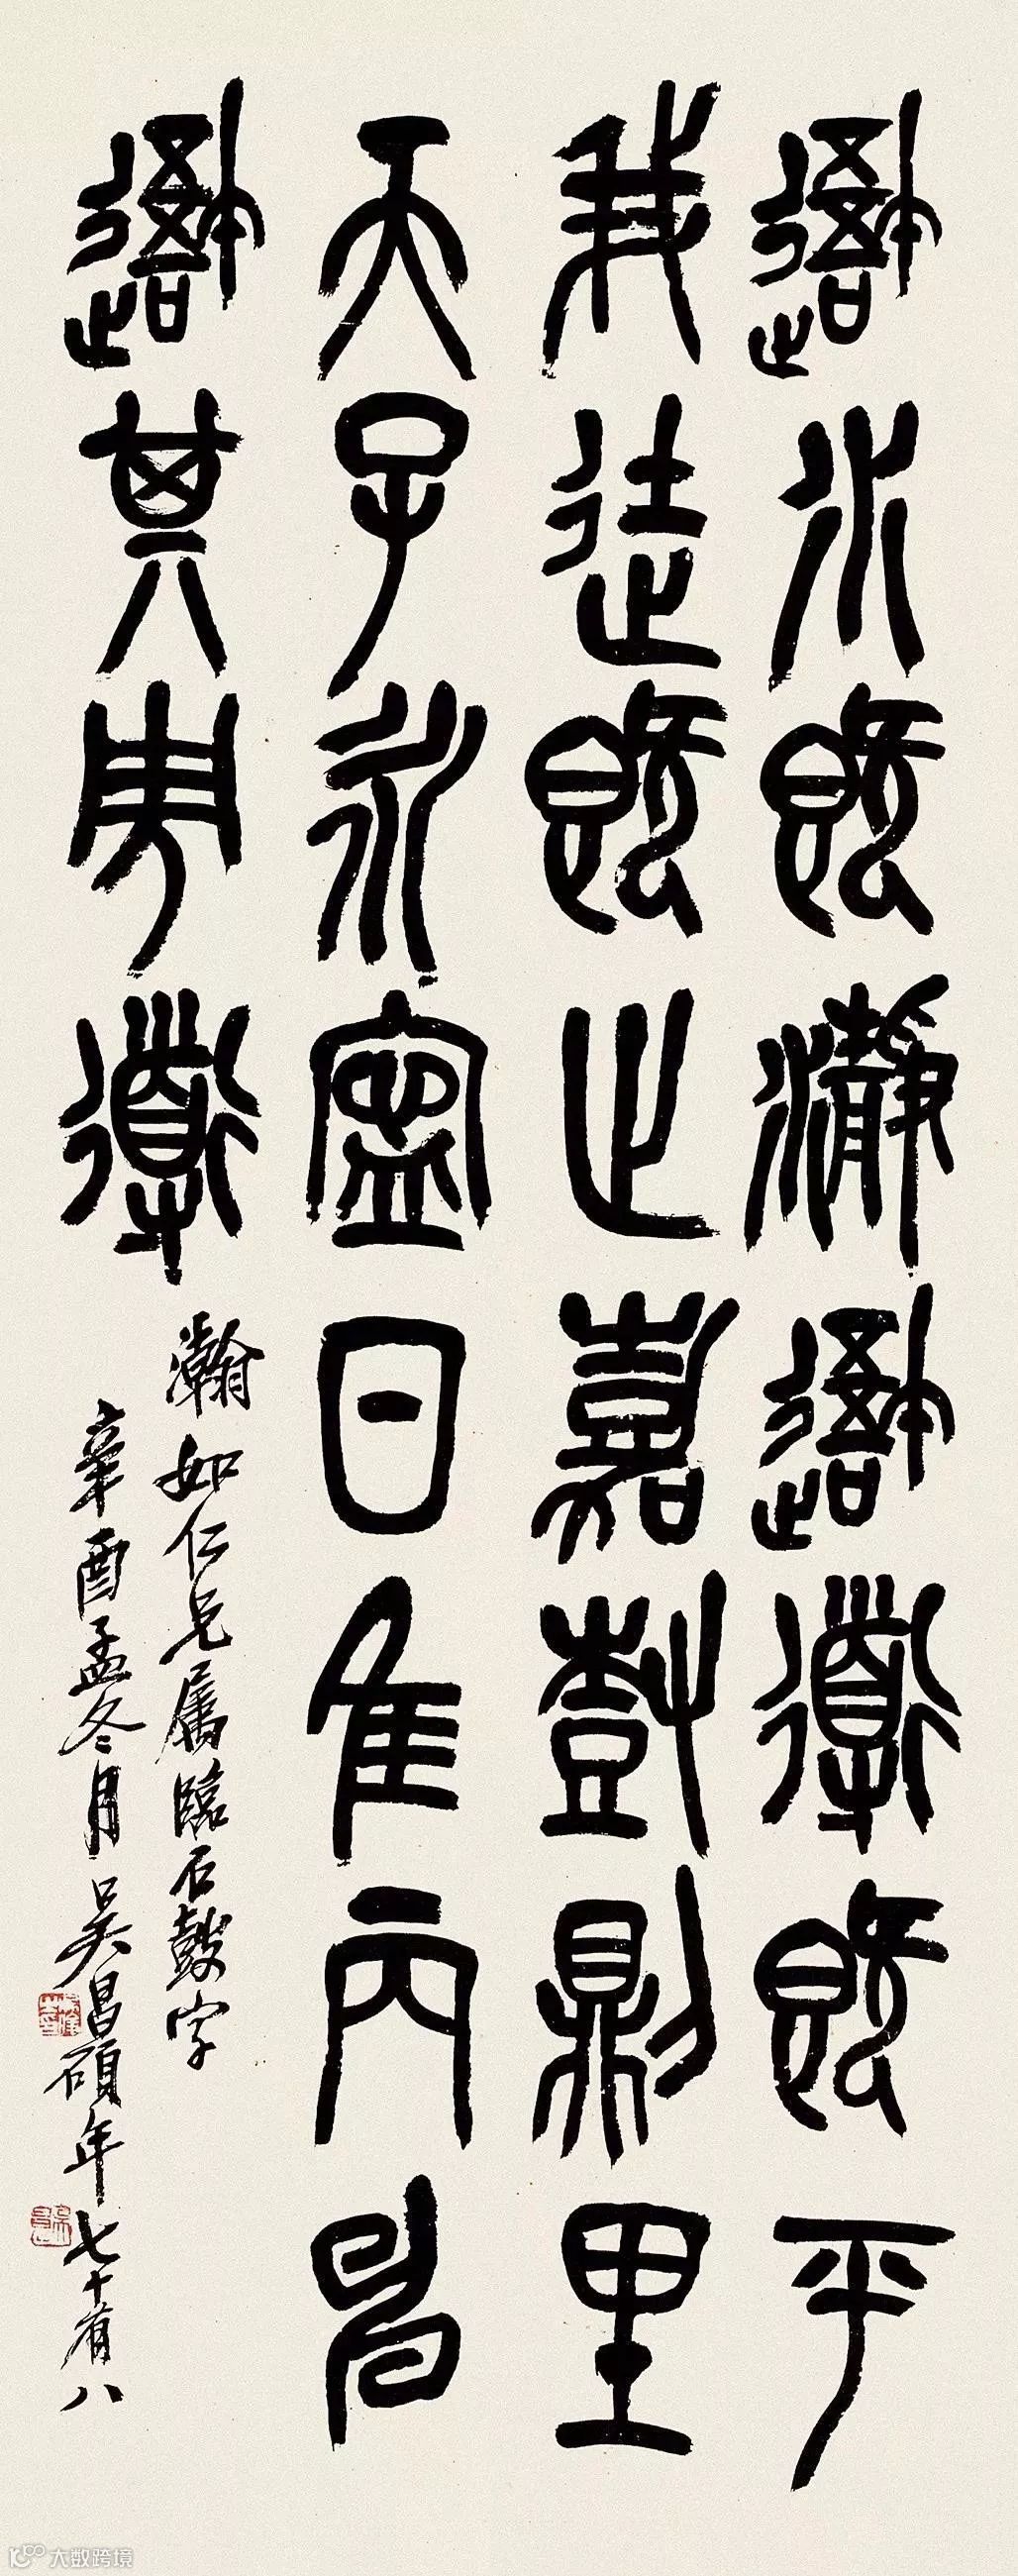 吾水既瀞吾導既平
我徒既止嘉尌則里
天子永寍日隹丙申
吾其周導
瀚如仁兄属臨石鼓字
辛酉孟冬月吴昌碩年七十有八
大数跨境